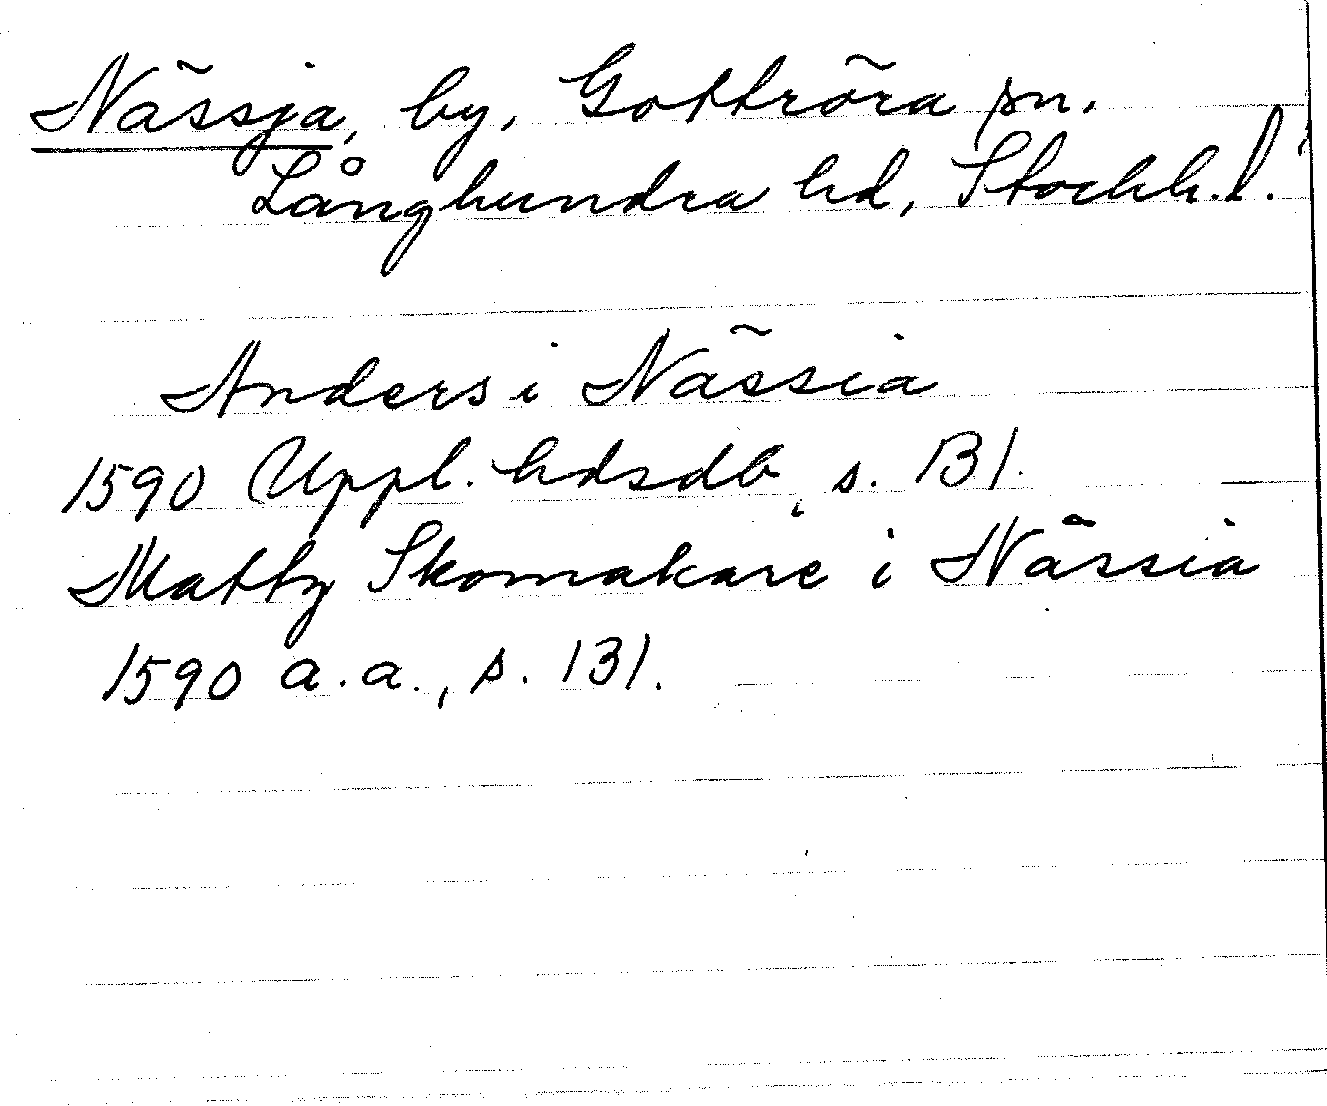 Nässja, by, Gottröra sn.
Långhundra hd, Stockh. l.
Anders i Nässia
1590 Uppl. hdsdb, s. 131.
Matty Skomakare i Nässia
1590 a.a., s. 131.